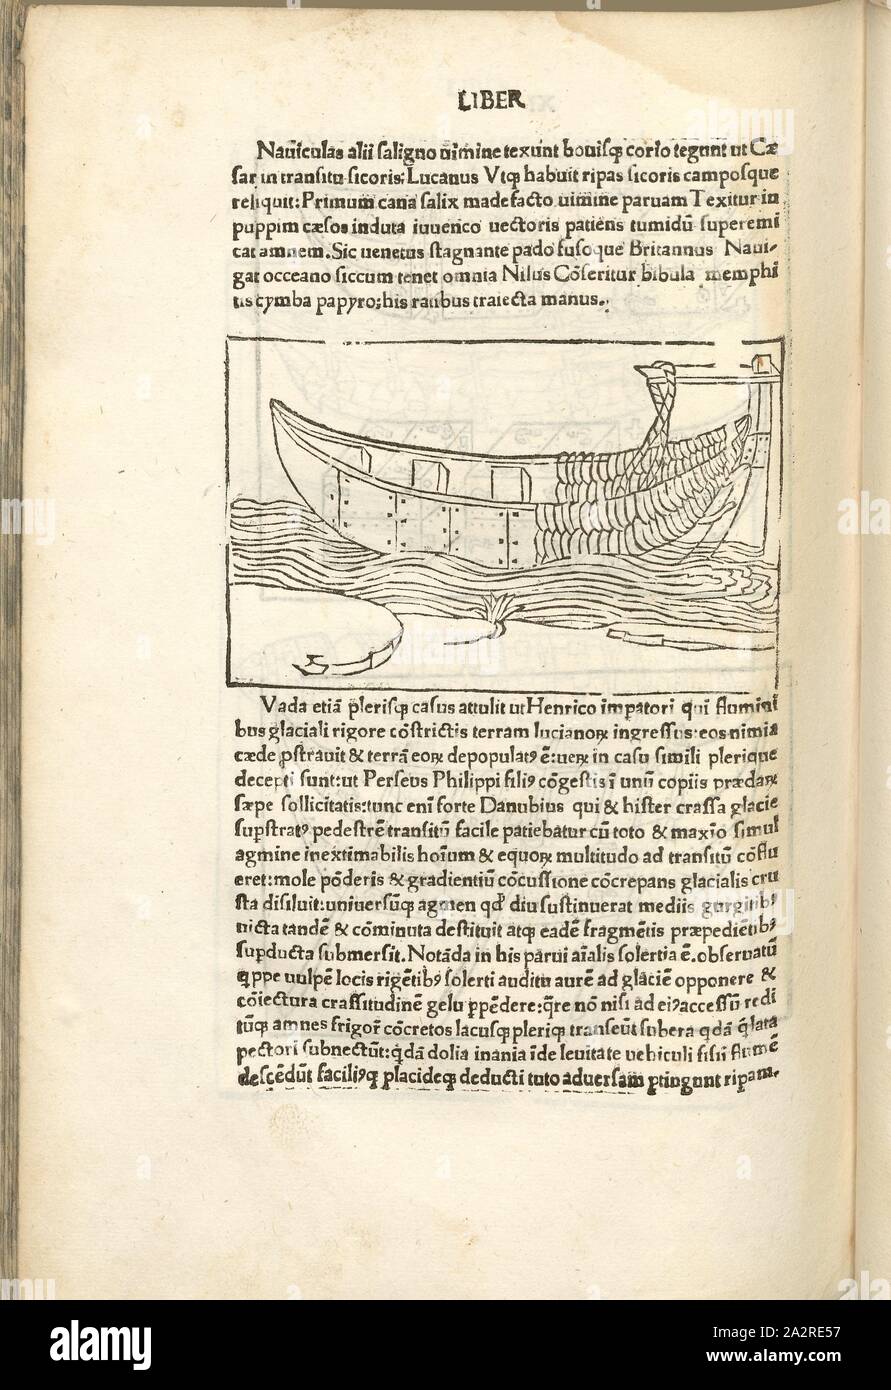 LIBER
Nauiculas alii saligno uimine texunt bouisq; corio tegunt ut Cæ
sar in transitu sicoris: Lucanus Vtq; habuit ripas sicoris camposque
reliquit: Primum cana salix madefacto uimine paruam Texitur in
puppim cæsos induta iuuenco uectoris patiens tumidū superemi
cat amnem. Sic uenetus stagnante pado fuso que Britannus Naui-
gat occeano siccum tenet omnia Nilus Cōseritur bibula memphi
tis cymba papyro; his ratibus traiecta manus.
Vada etiā plerisq; casus attulit ut Henrico īmpatori qui flumini
bus glaciali rigore cōstrictis terram lucianoꝝ ingressus: eos nimia
cæde ꝓstrauit & terrā eoꝝ depopulatꝰ ē: ueꝝ in casu simili plerique
decepti sunt: ut Perseus Philippi filiꝰ cōgestis ī unū copiis prædaꝝ
sæpe sollicitatis: tunc enī forte Danubius qui & hister crassa glacie
supstratꝰ pedestrē transitū facile patiebatur cū toto & maxīo simul
agmine inextimabilis hoīum & equoꝝ multitudo ad transitū cōflu
eret: mole pōderis & gradientiū cōcussione cōcrepans glacialis cru
sta disiluit: uniuersūq; agmen qđ diu sustinuerat mediis gurgitibꝰ
uicta tandē & cōminuta destituit atq; eadē fragmētis præpediētibꝰ
supducta submersit. Notāda in his parui aīalis solertia ē. obseruatū
qppe uulpē locis rigētibꝰ solerti auditu aurē ad glaciē opponere &
cōiectura crassitudinē gelu ꝑpēdere: qre nō nisi ad eiꝰ accessū redi
tūq; amnes frigor̄ cōcretos lacusq; pleriq; transeūt subera qdā q̄ lata
pectori subnectūt: q̄dā dolia inania īde leuitate uehiculi fisii flumē
descēdūt faciliꝰq; placideq; deducti tuto aduersam ꝑtingunt ripam.
alamy
Image ID: A2RE57
www.alamy.com